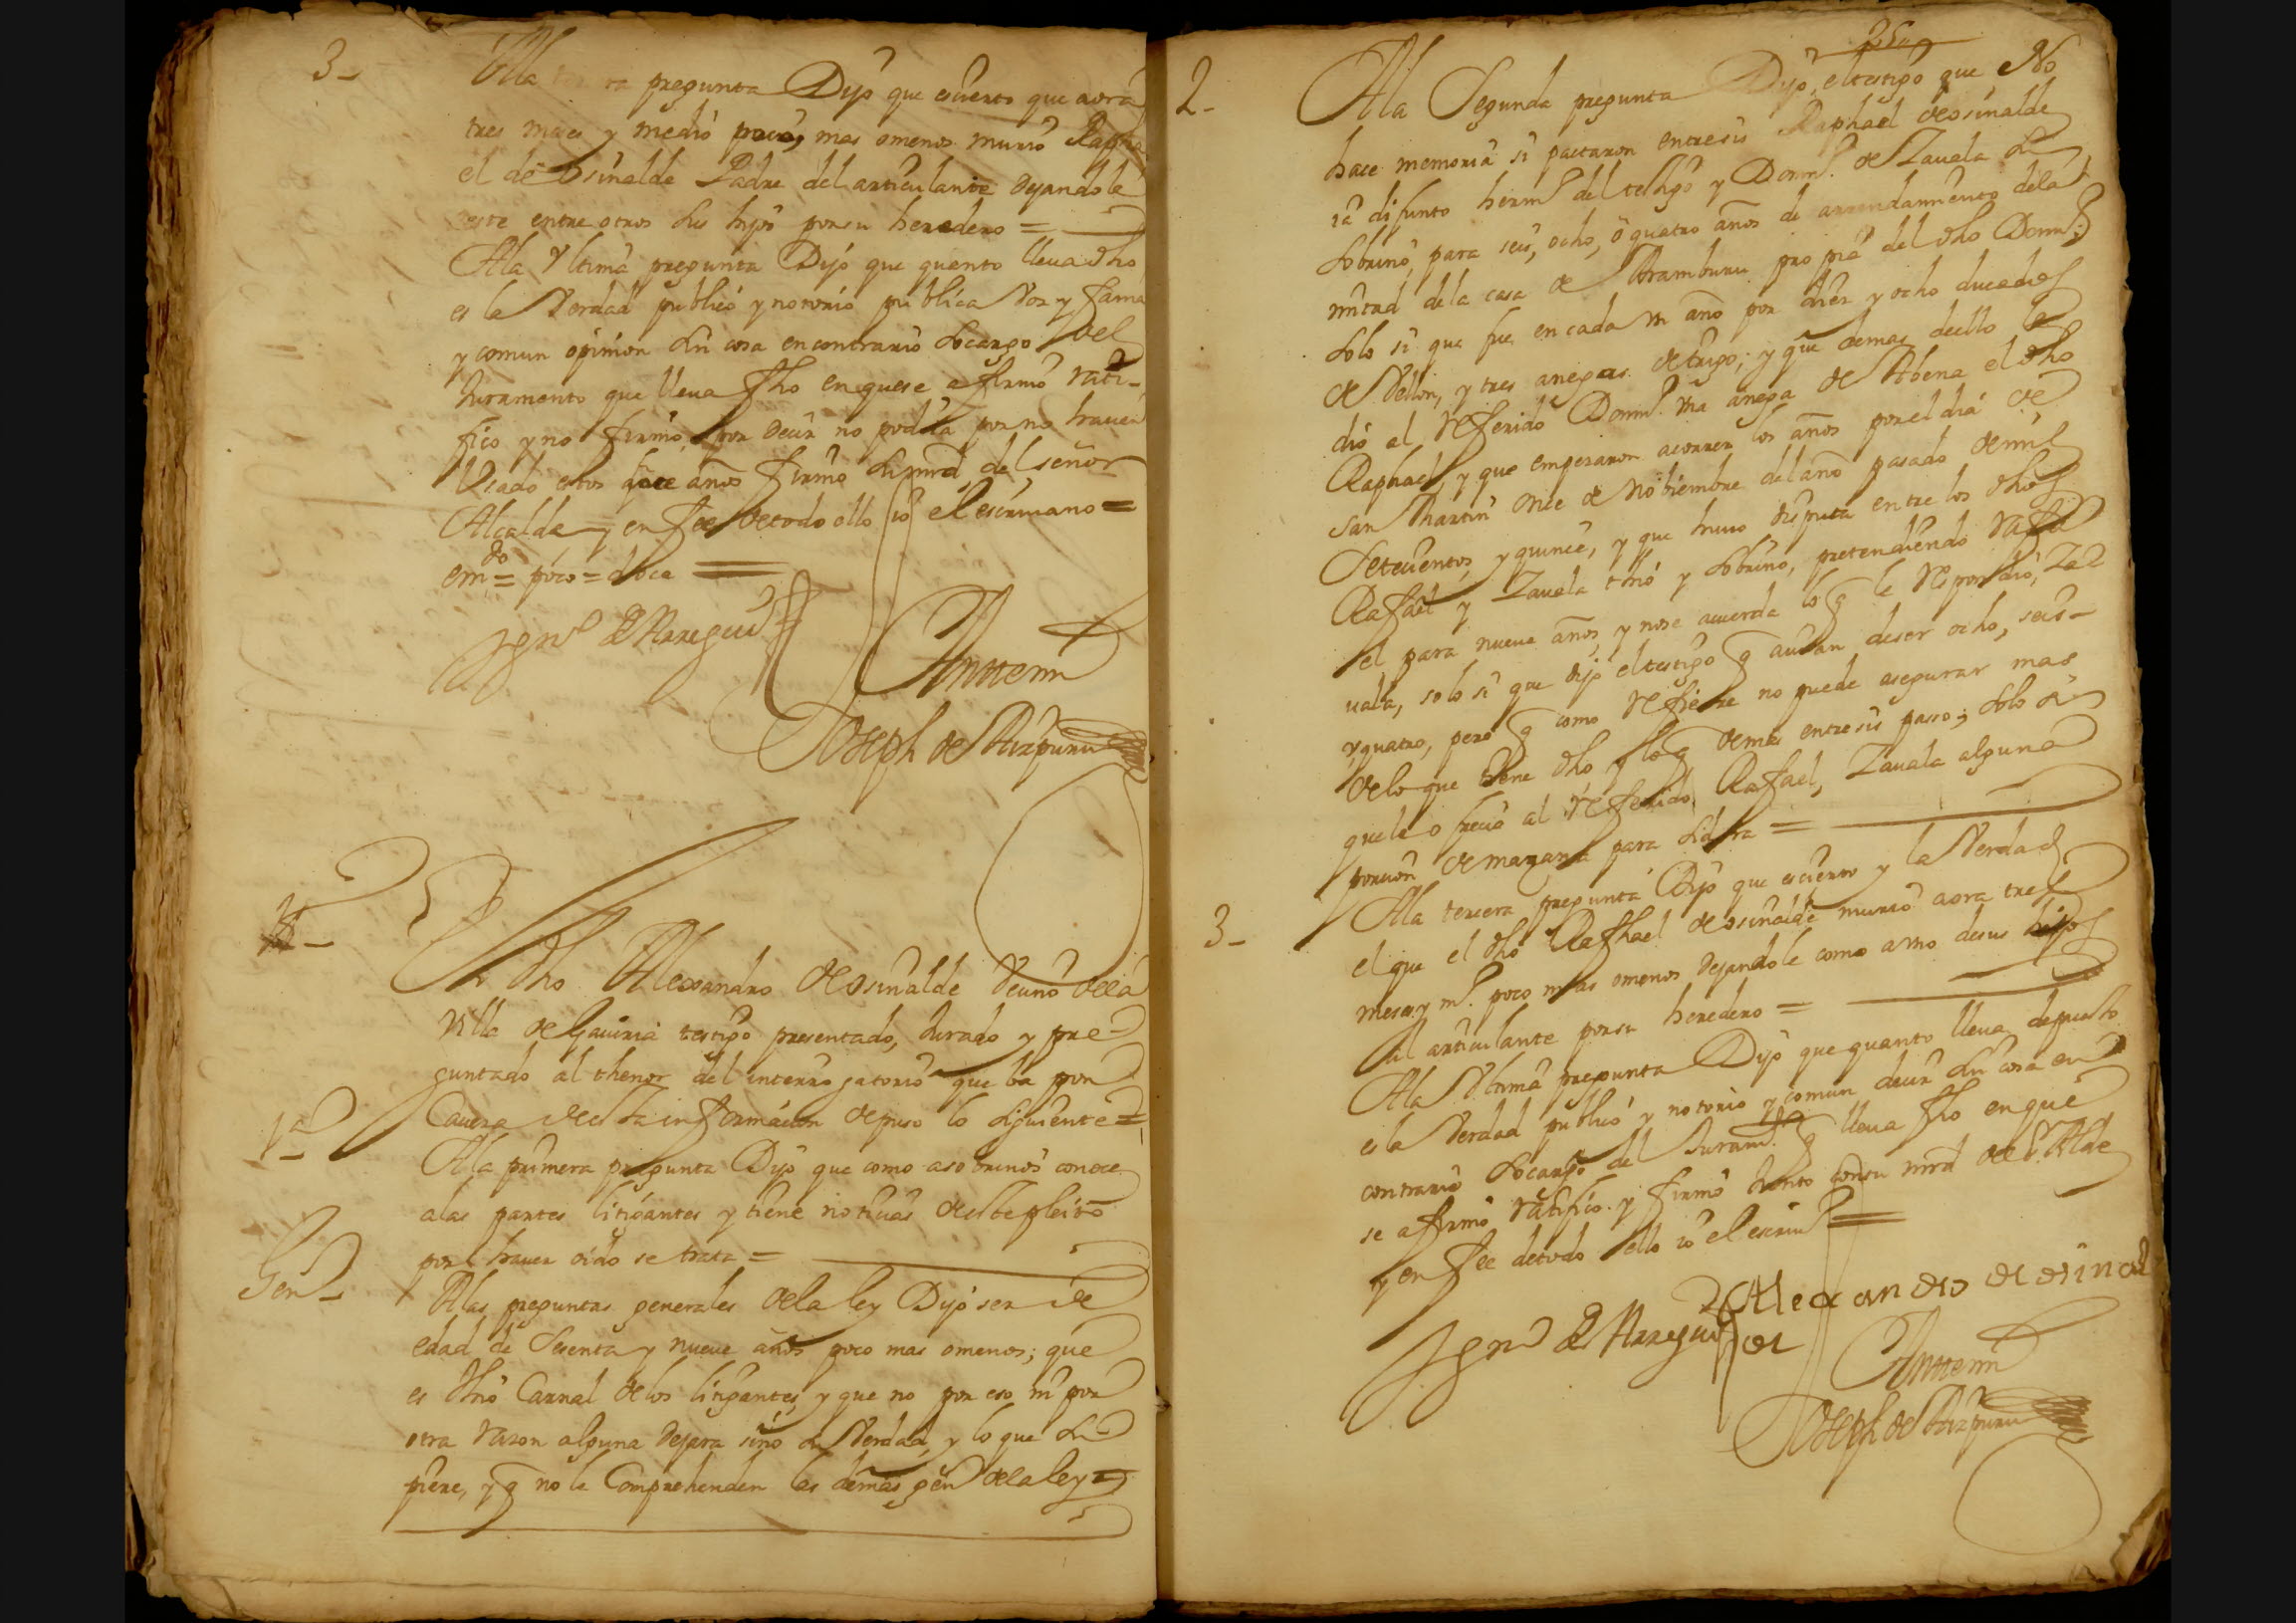 3_
Ala tercera pregunta Dijo que es cierto que aora
tres meses y medio poco, mas omenos murio Rapha
el de Osinalde Padre del articulante dejandole
a este entre otros sus hijos por su heredero =
Ala Vltima pregunta Dijo que quanto lleua dho
es la Verdad publico y notorio publica Voz y fama
y comun opinion sin cosa en contrario so cargo del
Juramento que lleua fho en que se afirmo rati-
fico y no firmo por decir no podia por no hauer
Usado estos doce años firmo su mrd del señor
Alcalde y en fee de todo ello yo el escriuano =
em.do = poco = doce =
Ign.o de Arregui
Antemi
Joseph de Aizpuru
El dho Alexandro de Osinalde Vecino de la
Villa de Gauiria testigo presentado, Jurado y pre-
guntado al thenor del interrogatorio que ba por
Cauera de esta informacion depuso lo siguiente =
1.a
Ala primera pregunta Dijo que como a sobrinos conoce
alas partes litigantes y tiene noticias de este pleito
por hauer oido se trata =
Gen_
Alas preguntas generales de la ley Dijo ser de
edad de Sesenta y nueve años poco mas omenos; que
es thio Carnal de los litigantes, y que no por eso ni por
otra razon alguna dejara sino la Verdad, y lo que su
piere, y q no le Comprehenden las demas gen de la ley =
250
2_
Ala Segunda pregunta Dijo, el testigo que No
hace memoria si pactaron entre sis Raphael de osinalde
ia difunto herm.o del testigo y Dom.o de Zauala su
sobrino, para seis, ocho, o quatro años de arrendamiento de la
mitad de la casa de Aramburu propia del dho Dom.o,
solo si que fue en cada vn año por diez y ocho ducados
de Vellon, y tres anegas de trigo; y que demas de ello le
dio al referido Dom.o vna anega de Abena el dho
Raphael, y que empezaron a correr los años por el dia de
san Martin once de Nobiembre del año pasado de mil
Setecientos, y quince, y que huuo disputa entre los dhos
Rafael y Zauala thio y sobrino, pretendiendo Rafa
el para nueve años, y no se acuerda lo q le respondio, Za
uala, solo si que dijo el testigo q auian de ser ocho, seis
y quatro, pero q como refiere no puede asegurar mas
de lo que tiene dho y lo q demas entre sis paso; solo si
que le ofrecio al referido Rafael, Zauala alguna
porcion de manzana para sidra =
3_
Ala tercera pregunta Dijo que es cierto y la Verdad
el que el dho Raphael de osinalde murio aora tres
meses y m.o poco mas omenos dejandole como a vno de sus hijos
al articulante por su heredero =
Ala Vltima pregunta Dijo que quanto lleua depuesto
es la Verdad publico y notorio y comun decir sin cosa en
contrario so cargo del Juram.to q lleua fho en que
se afirmo ratifico y firmo Junto con su mrd del S.r Alde
y en fee de todo ello yo el escriu.o =
Alexandro de osinal
de
Ign.o de Arregui
Antemi
Joseph de Aizpuru